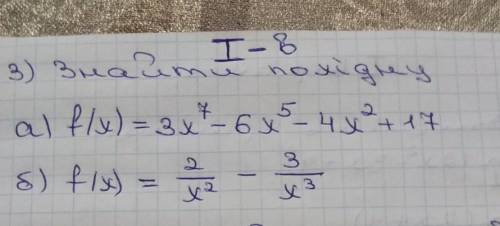 I-В
3) Знайти похідну
а) f(x) = 3x⁷ - 6x⁵ - 4x² + 17
б) f(x) = 2/x² - 3/x³